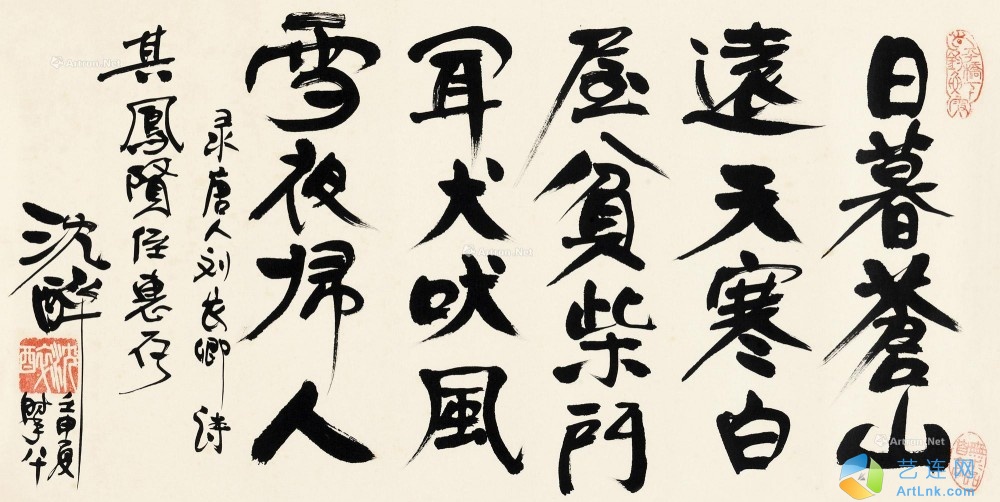 日暮蒼山
遠天寒白
屋貧柴門
聞犬吠風
雪夜帰人
录唐人刘长卿诗
其鳳賢侄惠存
沈醉
壬申夏
沈醉
艺连网
ArtLnk.com